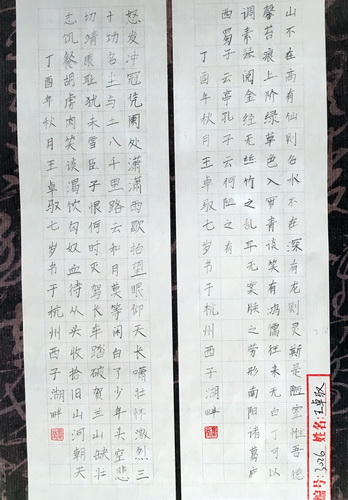 山不在高有仙则名水不在深有龙则灵斯是陋室惟吾德
馨苔痕上阶绿草色入帘青谈笑有鸿儒往来无白丁可以
调素琴阅金经无丝竹之乱耳无案牍之劳形南阳诸葛庐
西蜀子云亭孔子云何陋之有
丁酉年秋月王卓驭七岁书于杭州西子湖畔
怒发冲冠凭阑处潇潇雨歇抬望眼仰天长啸壮怀激烈三
十功名尘与土八千里路云和月莫等闲白了少年头空悲
切靖康耻犹未雪臣子恨何时灭驾长车踏破贺兰山缺壮
志饥餐胡虏肉笑谈渴饮匈奴血待从头收拾旧山河朝天
丁酉年秋月王卓驭七岁书于杭州西子湖畔
编号: 3026 姓名: 王卓驭